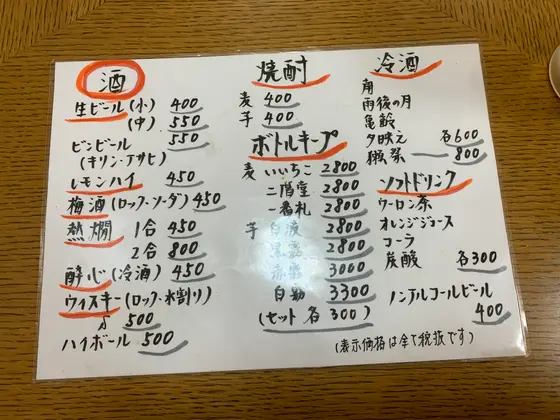 酒
生ビール(小) 400
(中) 550
ビンビール 550
(キリン・アサヒ)
レモンハイ 450
梅酒(ロック・ソーダ) 450
熱燗 1合 450
2合 800
酔心(冷酒) 450
ウィスキー(ロック・水割り)
500
ハイボール 500
焼酎
麦 400
芋 400
ボトルキープ
麦 いいちこ 2800
二階堂 2800
一番札 2800
芋 白波 2800
黒霧 2800
赤霧 3000
白勤 3300
(セット 各300)
冷酒
雨後の月
亀齢
夕映え 各600
獺祭 ― 800
ソフトドリンク
ウーロン茶
オレンジジュース
コーラ
炭酸 各300
ノンアルコールビール
400
(表示価格は全て税抜です)